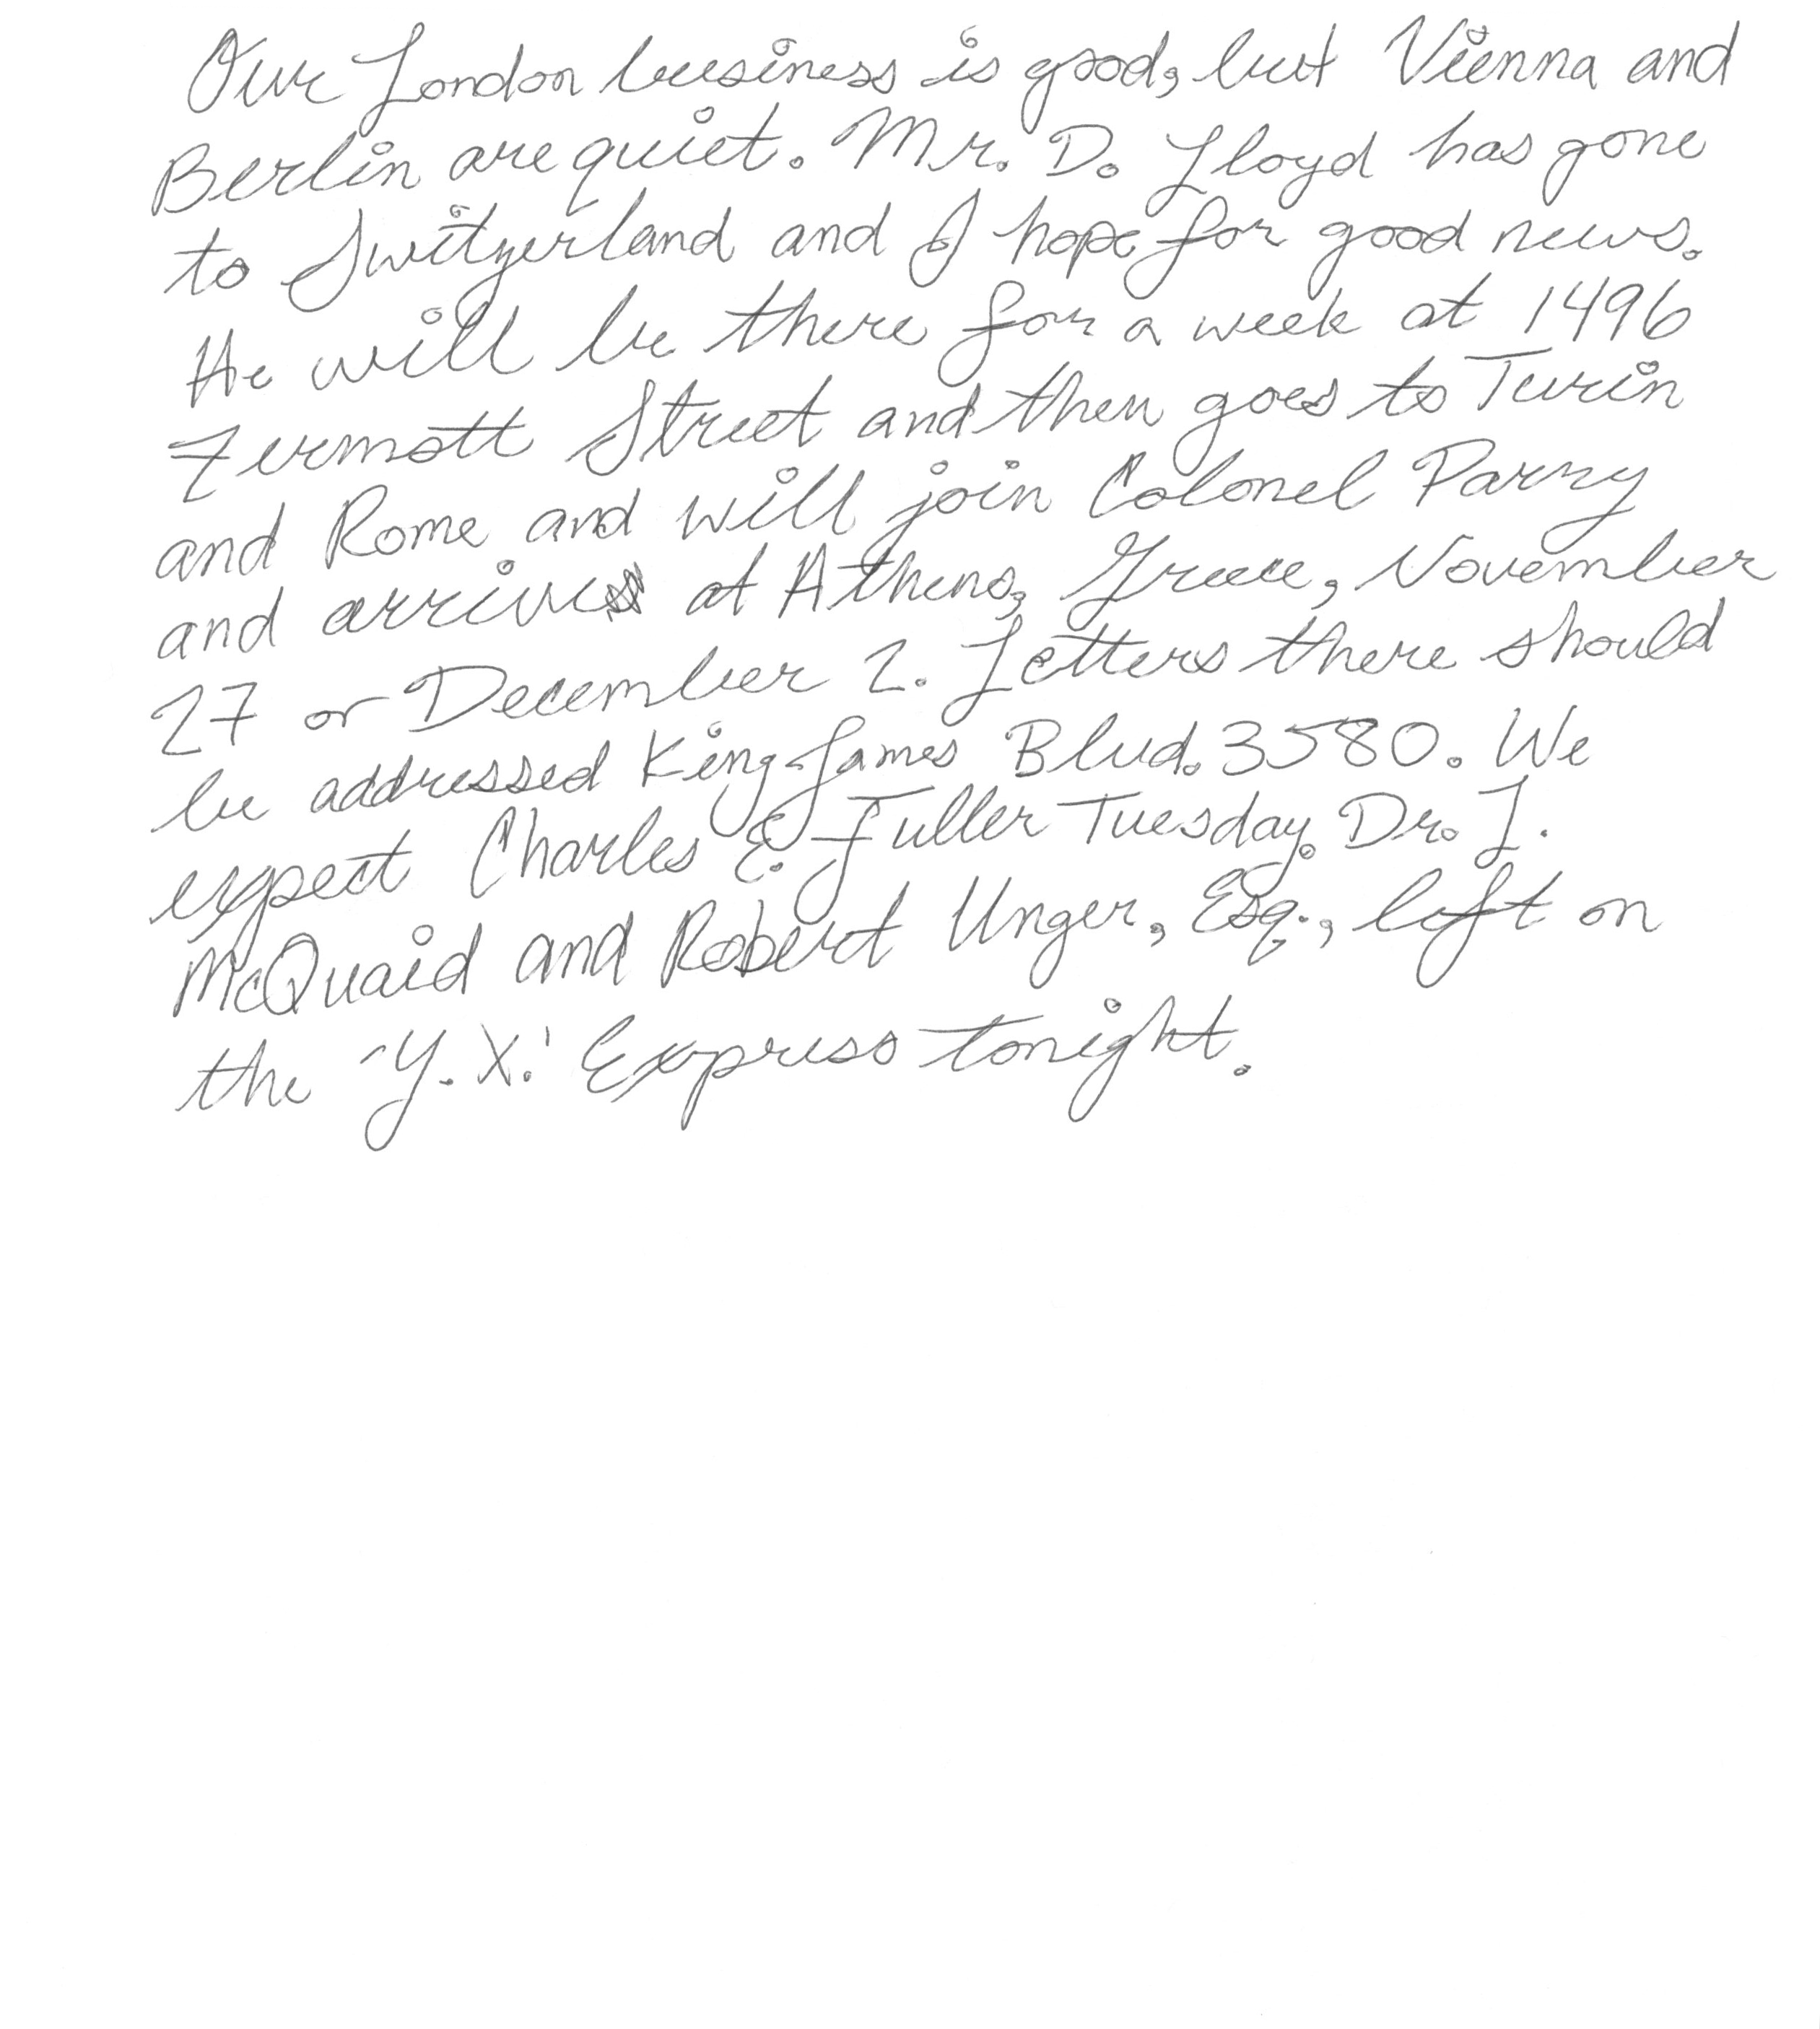 Our London business is good, but Vienna and
Berlin are quiet. Mr. D. Lloyd has gone
to Switzerland and I hope for good news.
He will be there for a week at 1496
Zermott Street and then goes to Turin
and Rome and will join Colonel Parry
and arrives at Athens, Greece, November
27 or December 2. Letters there should
be addressed King James Blvd. 3580. We
expect Charles E. Fuller Tuesday. Dr. L.
McQuaid and Robert Unger, Esq., left on
the "Y. X." Express tonight.